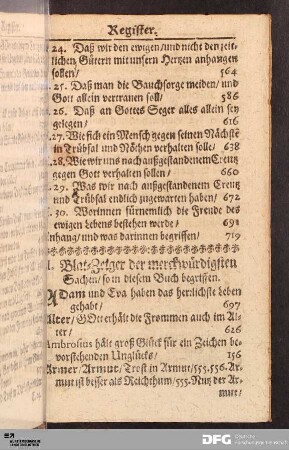 Register.
24. Daß wir den ewigen/und nicht den zeit-
lichen Gütern mit unsern Hertzen anhangen
sollen/ 564
25. Daß man die Bauchsorge meiden/ und
Gott allein vertrauen soll/ 586
26. Daß an Gottes Seger alles allein sey
gelegen/ 616
27. Wie sich ein Mensch gegen seinen Nächste
in Trübsal und Nöthen verhalten solle/ 638
28. Wie wir uns nach außgestandenem Creutz
gegen Gott verhalten sollen/ 660
29. Was wir nach außgestandenem Creutz
und Trübsal endlich zugewarten haben/ 672
30. Worinnen fürnemlich die Freude des
ewigen Lebens bestehen werde/ 691
Anhang/ und was darinnen begriffen/ 719
I. Blat-Zeiger der merckwürdigsten
Sachen/ so in diesem Buch begriffen.
ADam und Eva haben das herrlichste Leben
gehabt/ 697
Alter/ GOtt erhält die Frommen auch im Al-
ter/ 626
Ambrosius hält groß Glück für ein Zeichen be-
vorstehenden Unglücks/ 156
Armer/ Armut/ Trost in Armut/ 555.556. Ar-
mut ist besser als Reichthum/ 555. Nutz der Ar-
mut/
DFG Deutsche
Forschungsgemeinschaft